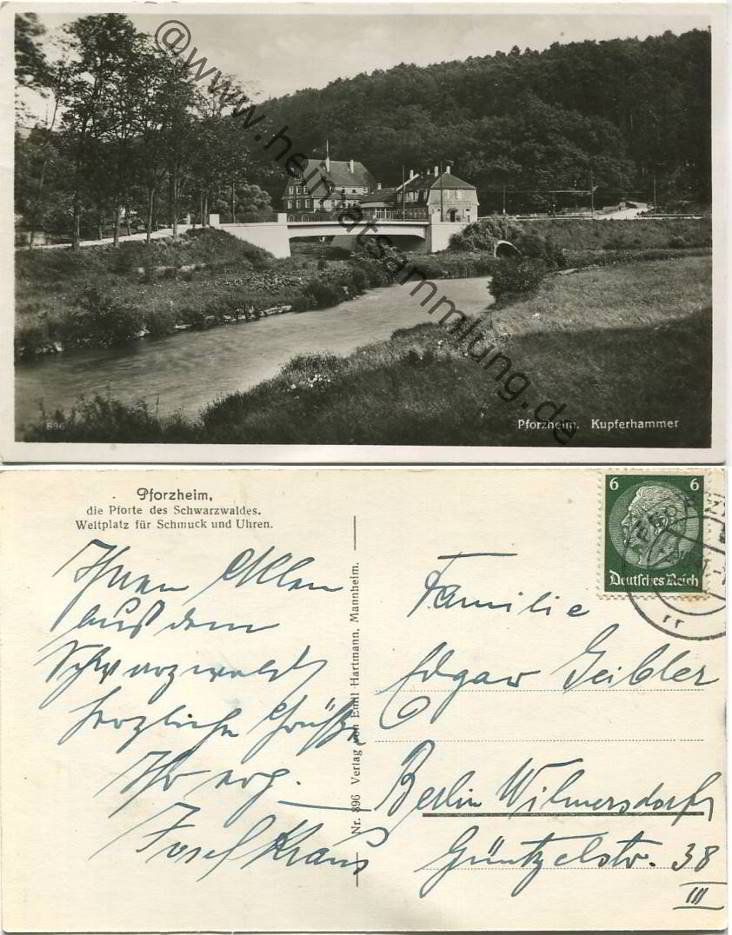 @www.heimatsammlung.de
896
Pforzheim. Kupferhammer
Pforzheim,
die Pforte des Schwarzwaldes.
Weltplatz für Schmuck und Uhren.
Ihnen Allen
aus dem
Schwarzwald
herzliche Grüße
Ihr erg.
Josef Kraus
Nr. 896 Verlag von Emil Hartmann, Mannheim.
6 6
Deutsches Reich
Familie
Edgar Geibler
Berlin Wilmersdorf
Güntzelstr. 38
III